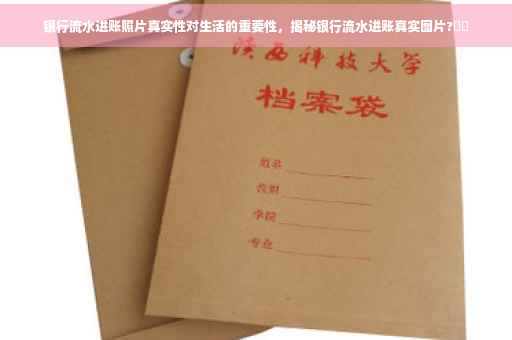 银行流水进账照片真实性对生活的重要性，揭秘银行流水进账真实图片?
陕西科技大学
档案袋
姓名
性别
学院
专业